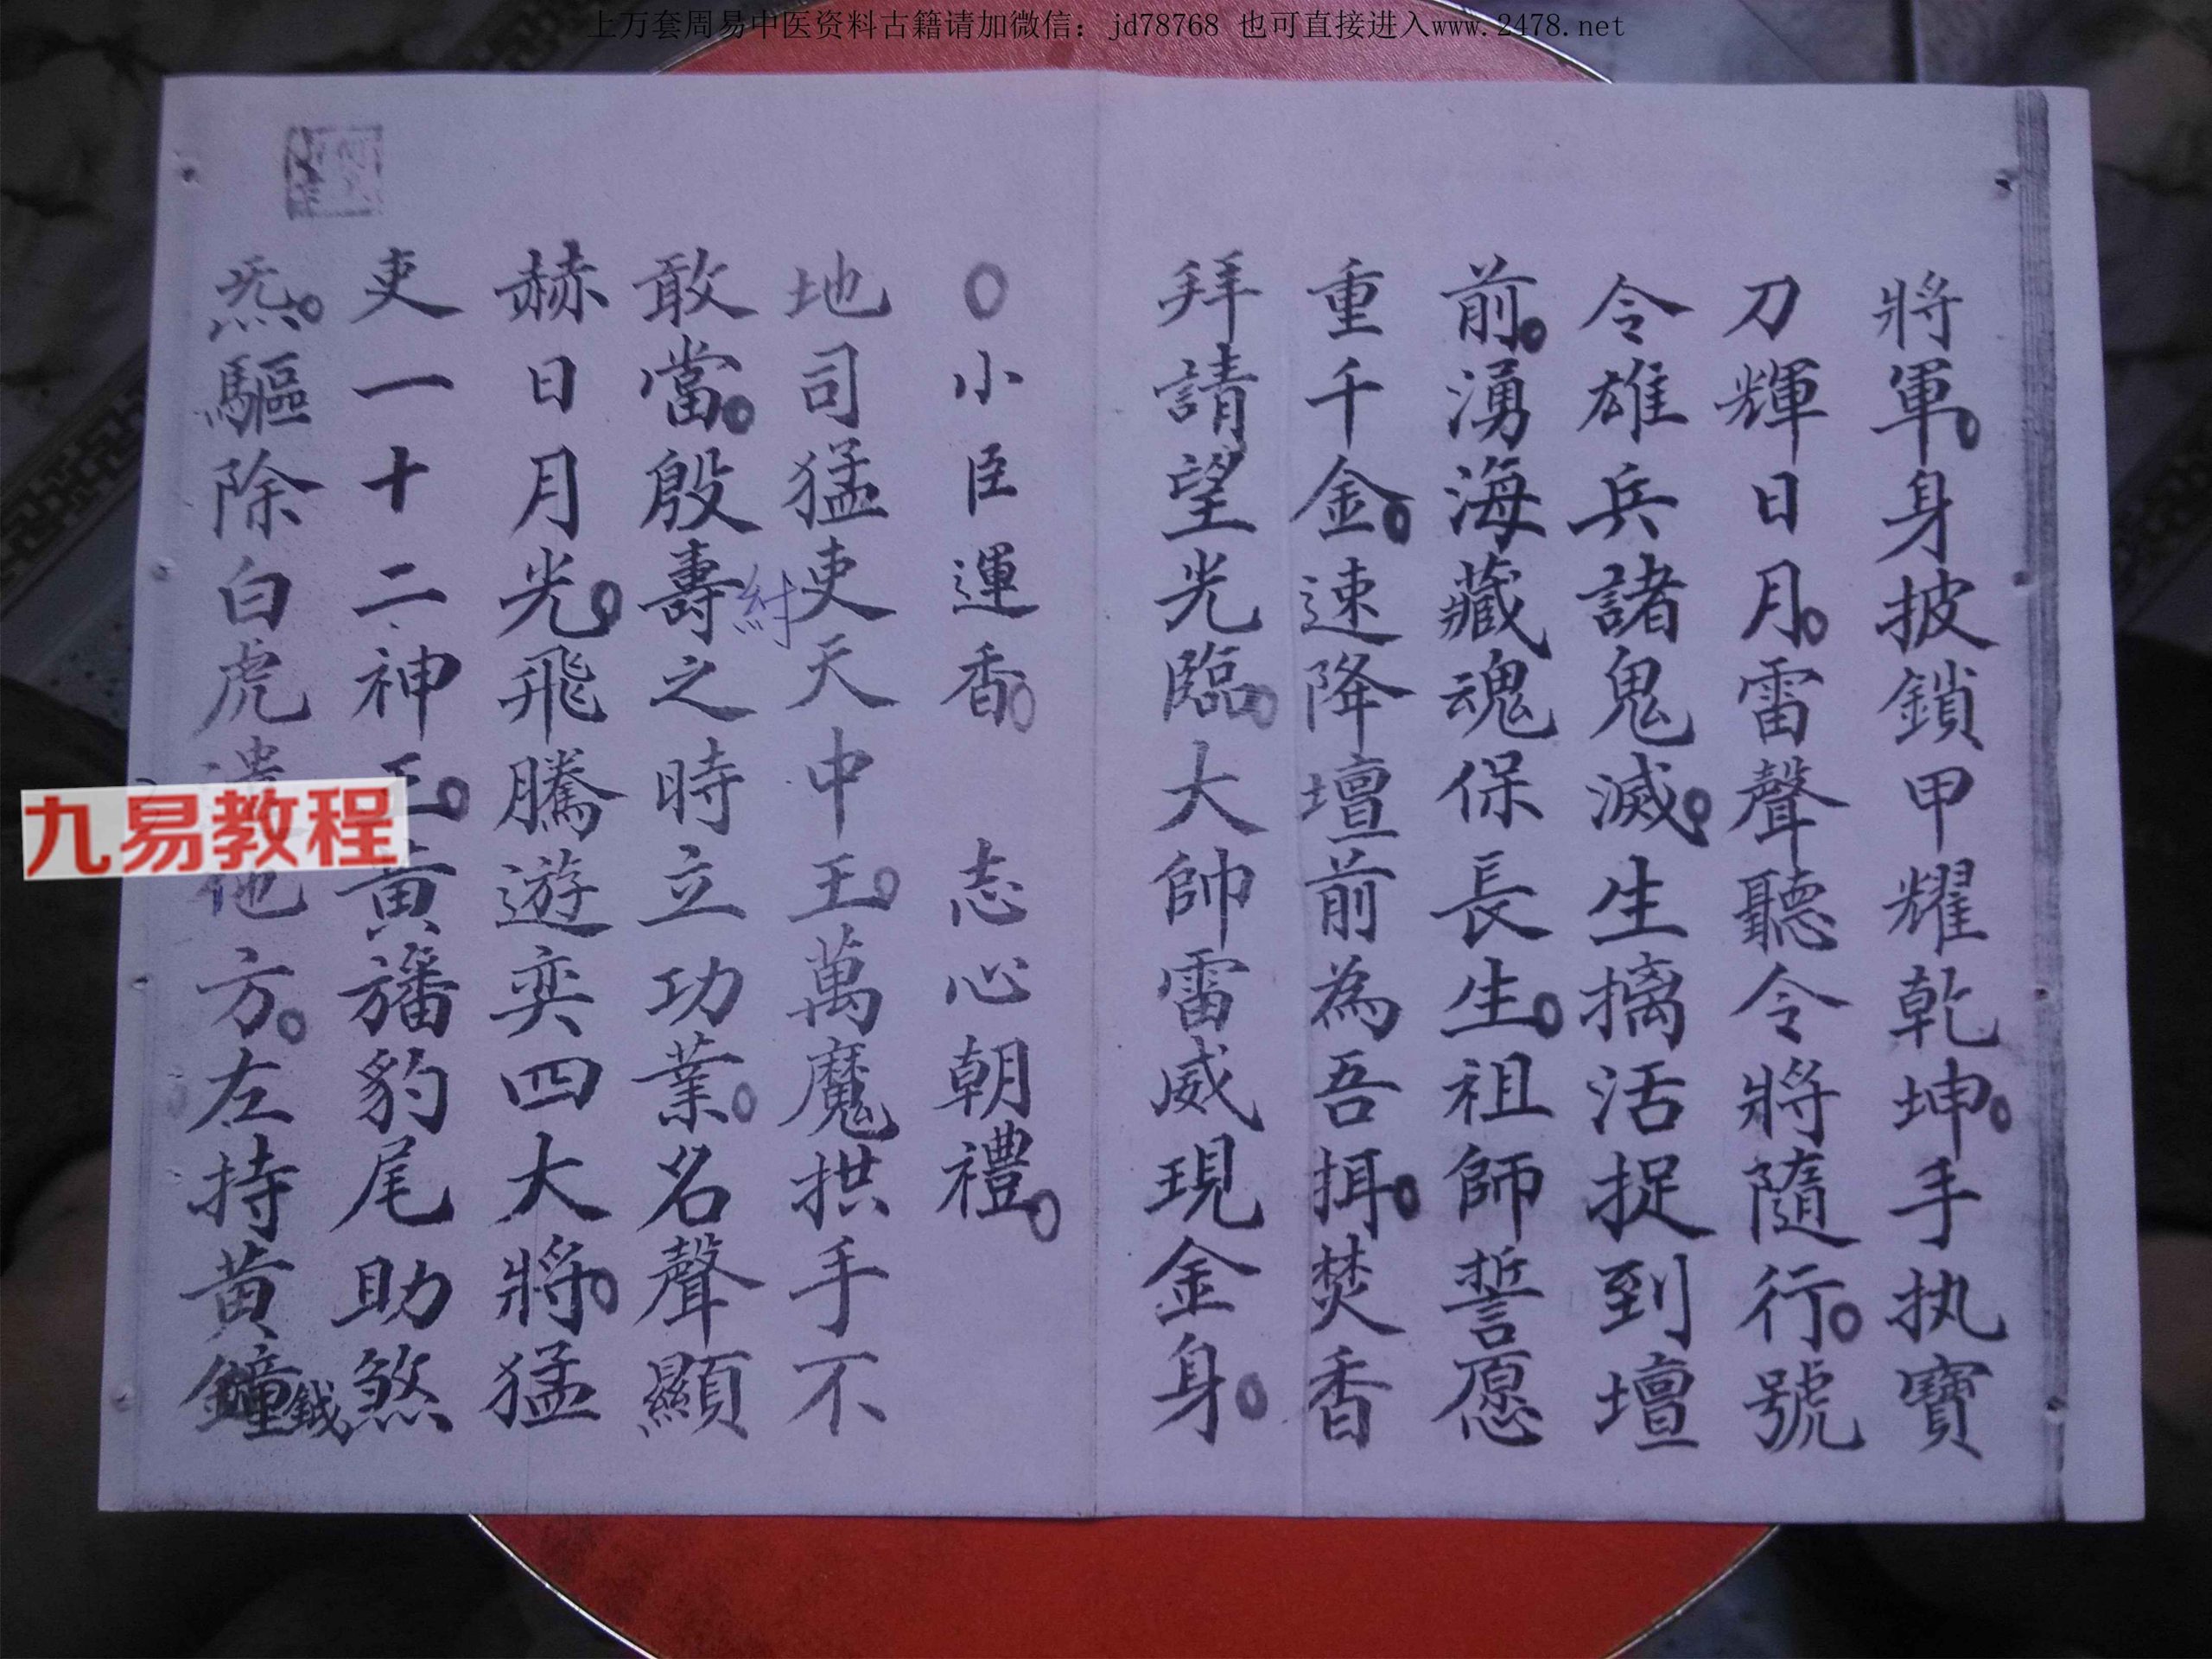 上万套周易中医资料古籍请加微信：jd78768 也可直接进入www.2478.net
將軍。身披鎖甲耀乾坤。手执寶
刀輝日月。雷聲聽令將隨行。號
令雄兵諸鬼滅。生擒活捉到壇
前。湧海藏魂保長生。祖師誓愿
重千金。速降壇前為吾揖。焚香
拜請望光臨。大帥雷威現金身。
○小臣運香。 志心朝禮。
地司猛吏天中王。萬魔拱手不
敢當。殷壽之時立功業。名聲顯
紂
赫日月光。飛騰遊奕四大將。猛
吏一十二神王。黄旛豹尾助煞
炁。驅除白虎 他方。左持黄鐘
鉞
九易教程